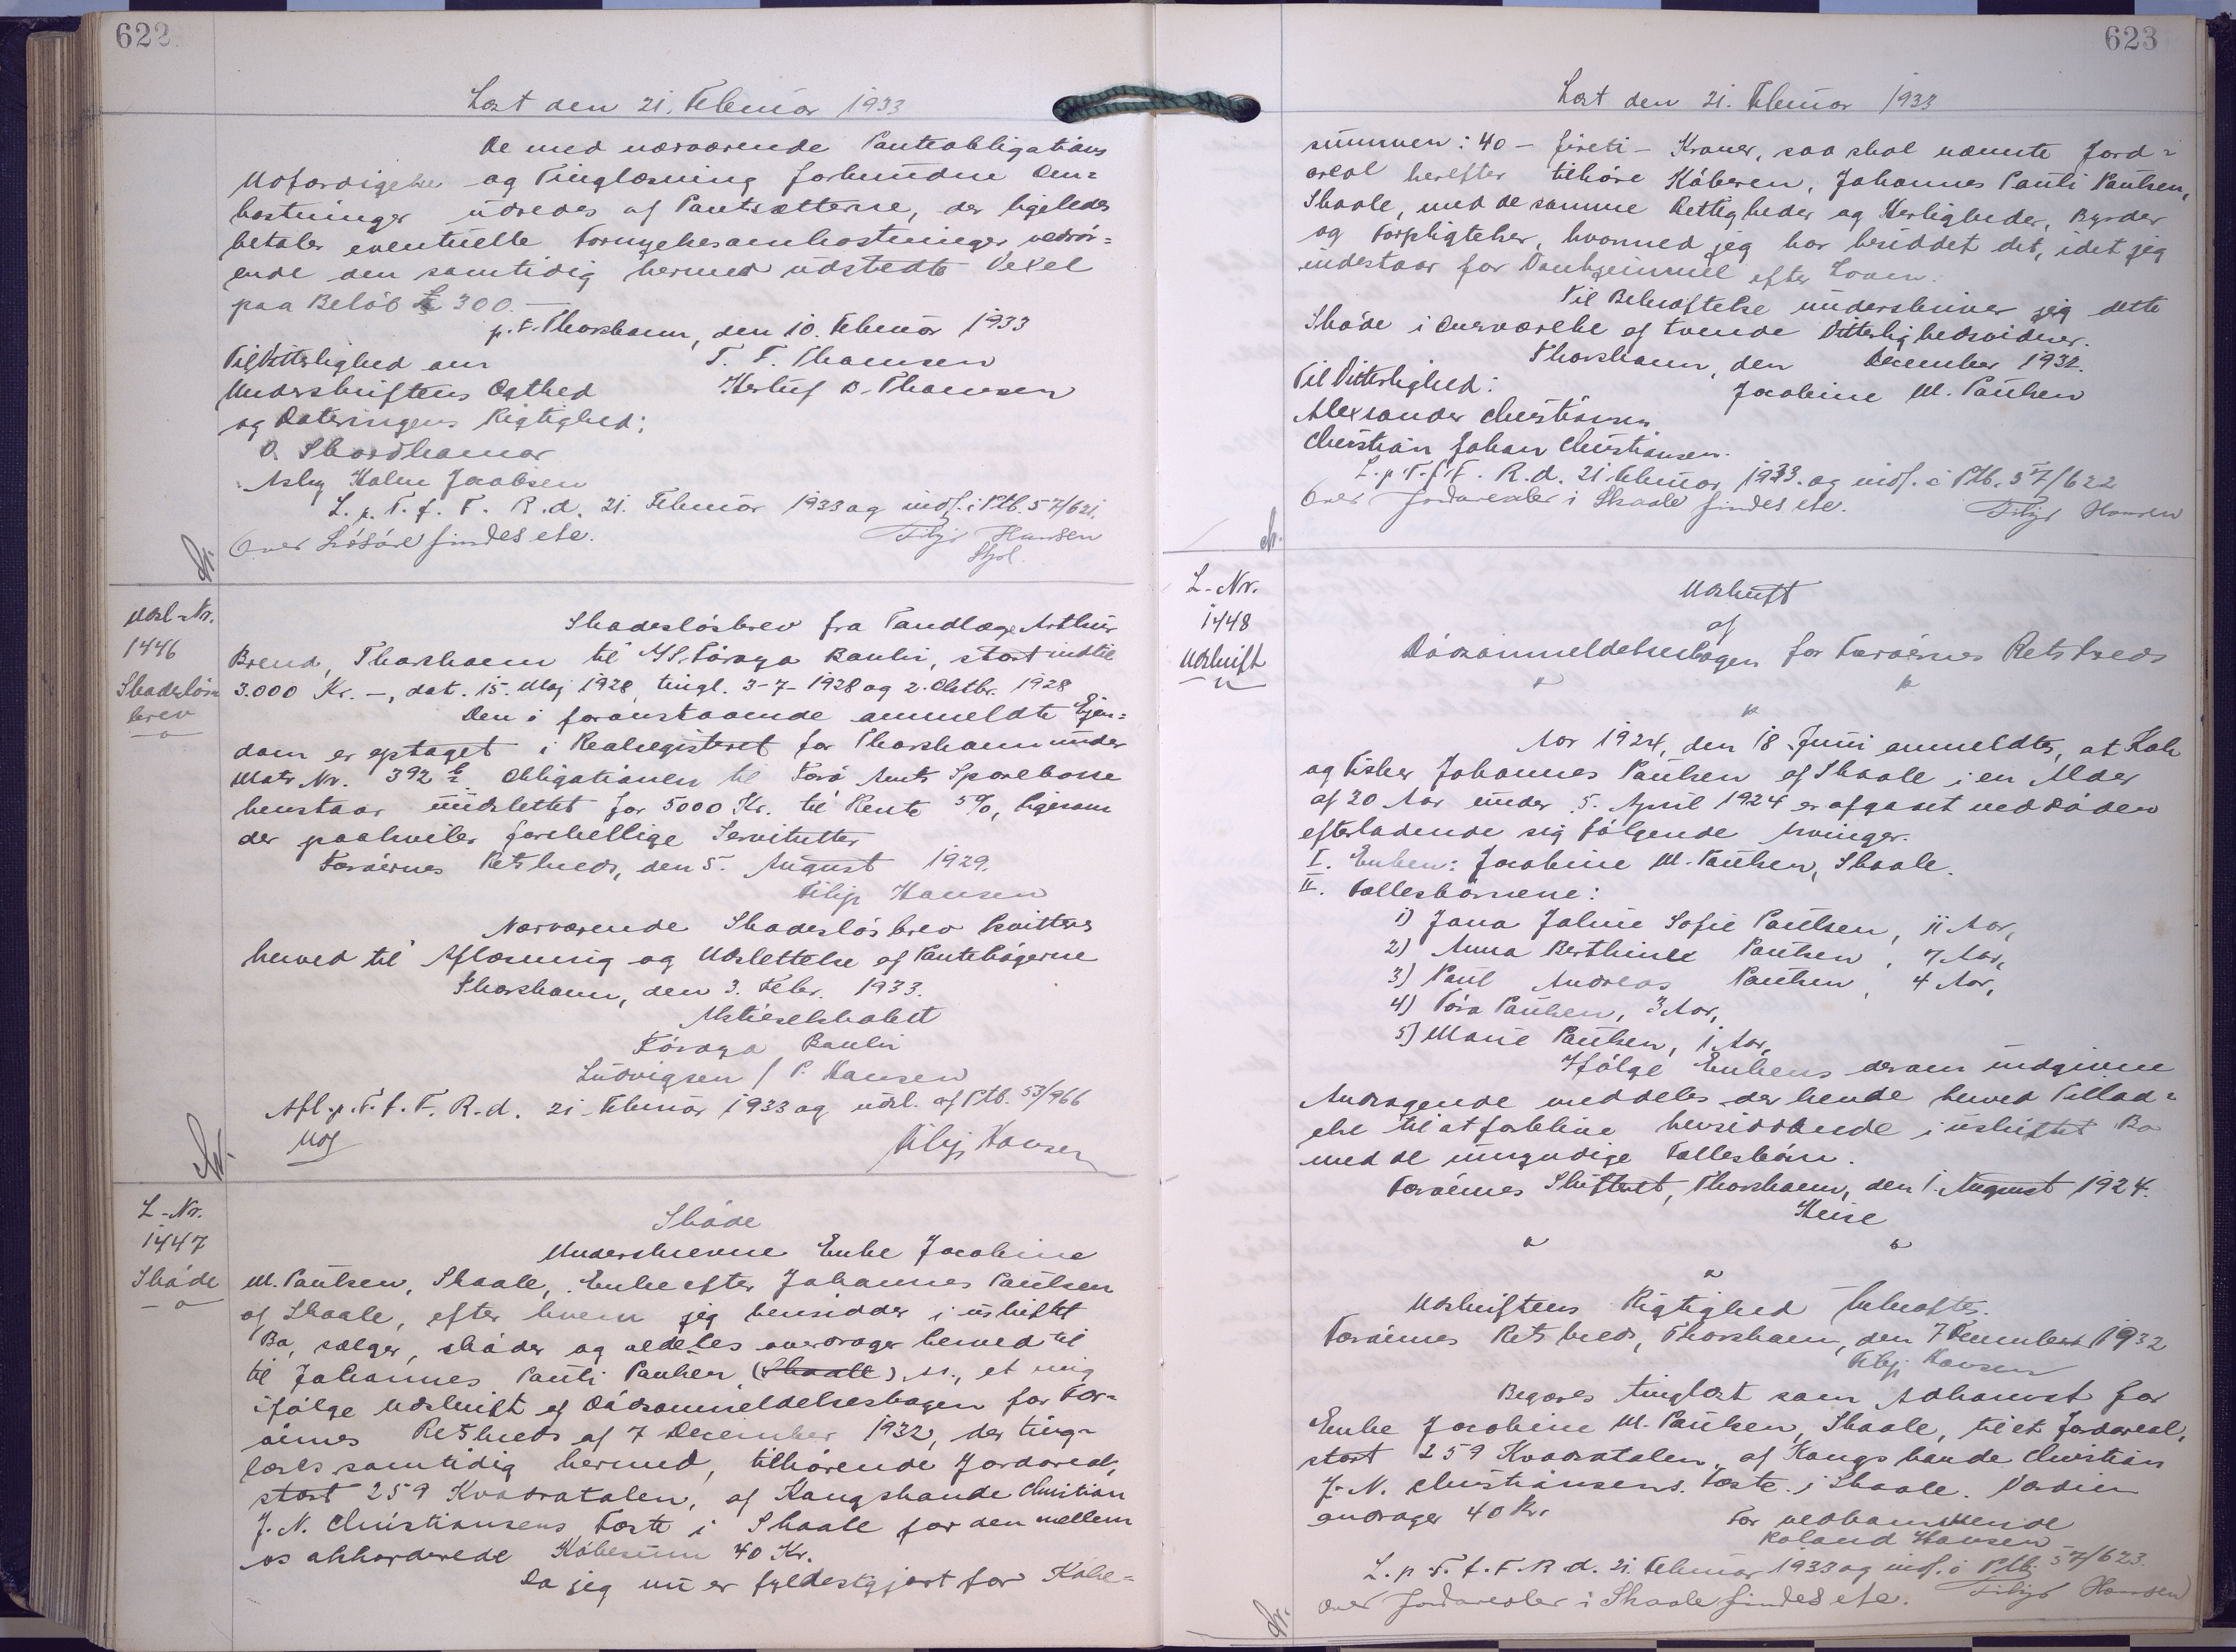 622
Læst den 21. Februar 1933
De med nærværende Panteobligations
Udfærdigelse og Tinglæsning forbundne Om=
kostninger udredes af Pantsætterne, der ligeledes
betaler eventuelle Fornyelsesomkostninger vedrör=
ende den samtidig hermed udstedte Vexel
paa Belöb £ 300.—
p.t. Thorshavn, den 10. Februar 1933
Til Vitterlighed om
T. F. Thomsen
Underskriftens Ægthed
Herluf D. Thomsen
og Dateringens Rigtighed:
O. Skardhamar
Holm Jacobsen
L. p. T. f. F. R. d. 21. Februar 1933 og indf. i Ptb. 57/621.
Over Lösöre findes ete.
Filip Hansen
Udsl-Nr.
1446
Skadeslös
brev
Skadeslösbrev fra Tandlæge Arthur
Brend, Thorshavn til A/S. Föroya Banki, stort indtil
3.000 Kr. -, dat. 15. Maj 1928, tingl. 3-7-1928 og 2. Oktbr. 1928
Den i foranstaaende anmeldte Ejen=
dom er optaget i Realregistret for Thorshavn under
Matr. Nr. 392 b. Obligationen til Færö Amts Sparekasse
henstaar uudslettet for 5000 Kr. til Rente 5%, ligesom
der paahviler forskellige Servitutter
Færöernes Retskreds, den 5. August 1929.
Filip Hansen
Nærværende Skadeslösbrev kvitteres
herved til Aflæsning og Udslettelse af Pantebögerne
Thorshavn, den 3. Febr. 1933.
Aktieselskabet
Föroya Banki
Ludvigsen / P. Hansen
Afl. p. T. f. F. R. d. 21. Februar 1933 og udsl. af Ptb. 53/966
Filip Hansen
L-Nr.
1447
Sköde
Sköde
Underskrevne Enke Jacobine
M. Paulsen, Skaale, Enke efter Johannes Paulsen
af Skaale, efter hvem jeg hensidder i uskiftet
Bo, sælger, sköder og aldeles overdrager herved til
til Johannes Pauli Paulsen (Skaale) , et mig
ifölge Udskrift af Dödsanmeldelsesbogen for Fær=
öernes Retskreds af 7 December 1932, der ting=
læses samtidig hermed, tilhörende Jordareal,
stort 259 Kvadratalen, af Kongsbonde Christian
J. N. Christiansens Fæste i Skaale for den mellem
os akkorderede Köbesum 40 Kr.
Da jeg nu er fyldestgjort for Köbe=
623
Læst den 21. Februar 1933
summen: 40 - fireti - Kroner, saa skal nævnte Jord=
areal herefter tilhöre Köberen, Johannes Pauli Paulsen,
Skaale, med de samme Rettigheder og Herligheder, Byrder
og Forpligtelser, hvormed jeg har besiddet det, idet jeg
indestaar for Vanhjemmel efter Loven.
Til Bekræftelse underskriver jeg dette
Sköde i Overværelse af tvende Vitterlighedsvidner.
Thorshavn, den December 1932.
Til Vitterlighed:
Jacobine M. Paulsen
Alexander Christiansen
Christian Johan Christiansen.
L. p. T. f. F. R. d. 21 Februar 1933. og indf. i Ptb. 57/622
Over Jordarealer i Skaale findes ete.
Filip Hansen
L-Nr.
1448
Udskrift
Udskrift
af
Dödsanmeldelsesbogen for Færöernes Retskreds
Aar 1924, den 18 Juni anmeldtes, at Kok
og Fisker Johannes Paulsen af Skaale i en Alder
af 30 Aar under 5. April 1924 er afgaaet ved Döden
efterladende sig fölgende Arvinger.
I. Enken: Jacobine M. Paulsen, Skaale.
II. Fællesbörnene:
1) Jona Joline Sofie Paulsen, 11 Aar,
2) Anna Berthine Paulsen, 7 Aar,
3) Paul Andreas Paulsen, 4 Aar,
4) Tóra Paulsen, 3 Aar,
5) Marie Paulsen, 1 Aar,
Ifölge Enkens derom indgivne
Andragende meddeles der hende herved Tillad=
else til at forblive hensiddende i uskiftet Bo
med de umyndige Fællesbörn.
Færöernes Skifteret, Thorshavn, den 1. August 1924.
Heise
Udskriftens Rigtighed bekræftes.
Færöernes Retskreds, Thorshavn, den 7 December 1932
Filip Hansen
Begæres tinglæst som Adkomst for
Enke Jacobine M. Paulsen, Skaale, til et Jordareal,
stort 259 Kvadratalen, af Kongsbonde Christian
J. N. Christiansens Fæste i Skaale. Værdien
andrager 40 Kr.
For vedkommende
Roland Hansen
L. p. T. f. F. R. d. 21. Februar 1933 og indf. i Ptb. 57/623.
Over Jordarealer i Skaale findes ete.
Filip Hansen